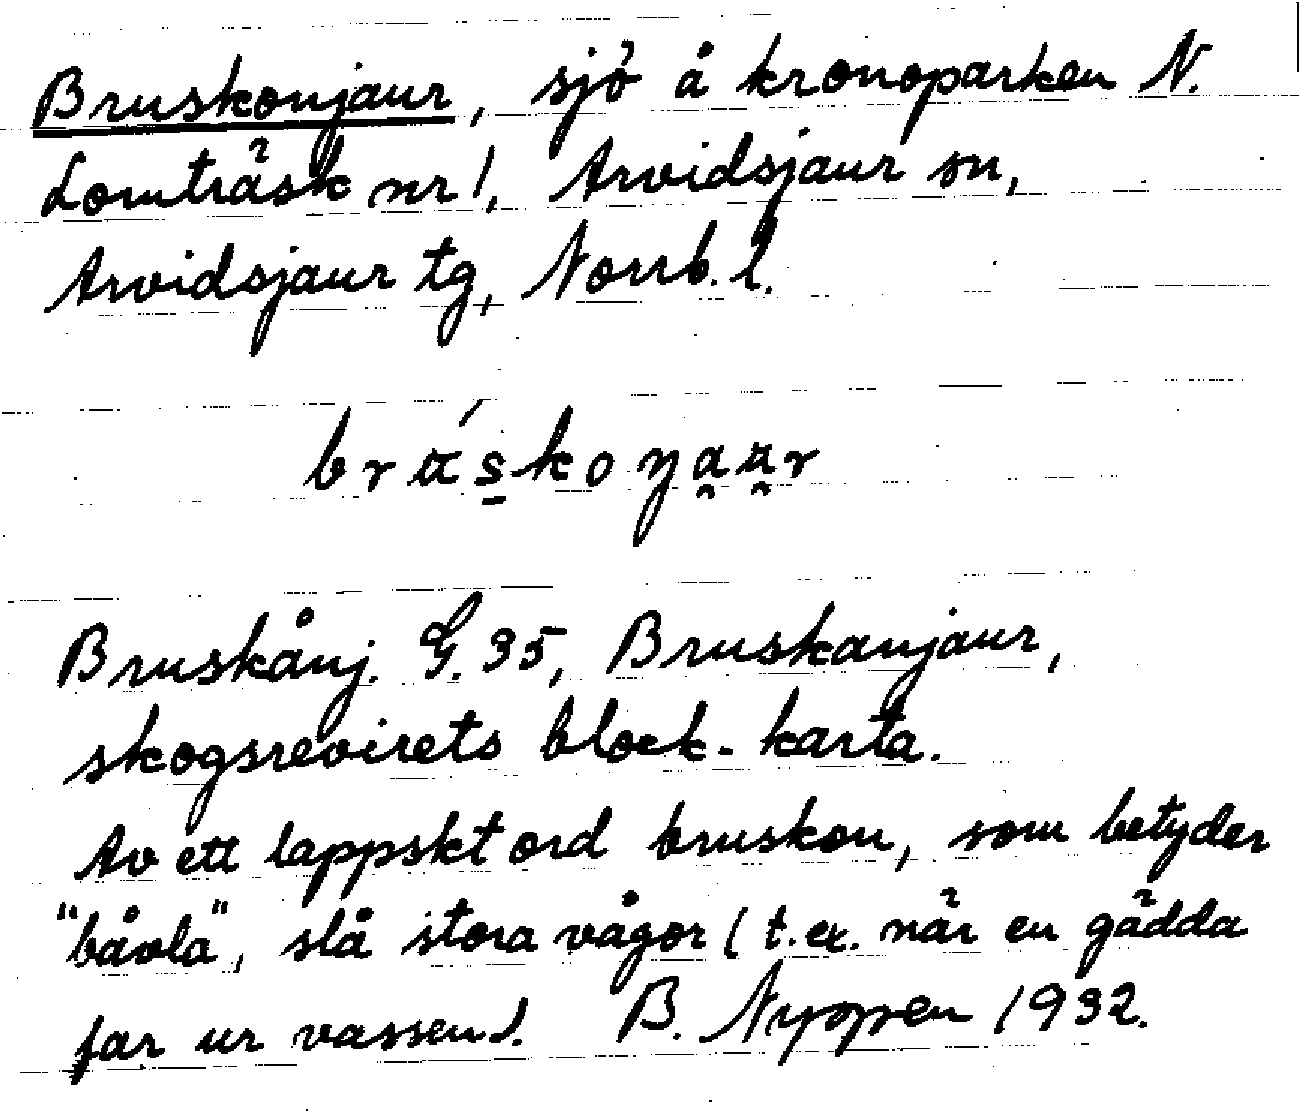 Bruskonjaur, sjö å kronoparken N.
Lomträsk nr 1, Arvidsjaur sn,
Arvidsjaur tg, Norrb. l.
Bruskånj. G. 35, Bruskanjaur,
skogsrevirets block-karta.
Av ett lappskt ord bruskon, som betyder
"båvla", slå stora vågor (t. ex. när en gädda
far ur vassen). B. Nyppen 1932.